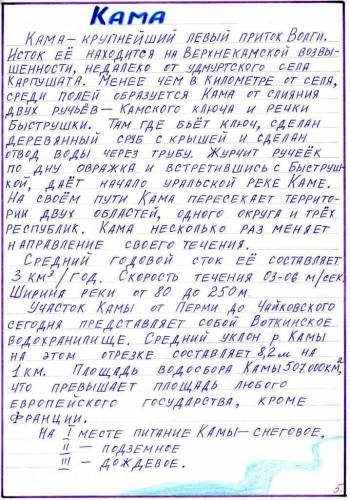 КАМА
КАМА – КРУПНЕЙШИЙ ЛЕВЫЙ ПРИТОК ВОЛГИ.
ИСТОК ЕЁ НАХОДИТСЯ НА ВЕРХНЕКАМСКОЙ ВОЗВЫ-
ШЕННОСТИ, НЕДАЛЕКО ОТ УДМУРТСКОГО СЕЛА
КАРПУШАТА. МЕНЕЕ ЧЕМ В КИЛОМЕТРЕ ОТ СЕЛА,
СРЕДИ ПОЛЕЙ ОБРАЗУЕТСЯ КАМА ОТ СЛИЯНИЯ
ДВУХ РУЧЬЁВ – КАМСКОГО КЛЮЧА И РЕЧКИ
БЫСТРУШКИ. ТАМ ГДЕ БЬЁТ КЛЮЧ, СДЕЛАН
ДЕРЕВЯННЫЙ СРУБ С КРЫШЕЙ И СДЕЛАН
ОТВОД ВОДЫ ЧЕРЕЗ ТРУБУ. ЖУРЧИТ РУЧЕЁК
ПО ДНУ ОВРАЖКА И ВСТРЕТИВШИСЬ С БЫСТРУШ-
КОЙ, ДАЁТ НАЧАЛО УРАЛЬСКОЙ РЕКЕ КАМЕ.
НА СВОЁМ ПУТИ КАМА ПЕРЕСЕКАЕТ ТЕРРИТО-
РИИ ДВУХ ОБЛАСТЕЙ, ОДНОГО ОКРУГА И ТРЁХ
РЕСПУБЛИК. КАМА НЕСКОЛЬКО РАЗ МЕНЯЕТ
НАПРАВЛЕНИЕ СВОЕГО ТЕЧЕНИЯ.
СРЕДНИЙ ГОДОВОЙ СТОК ЕЁ СОСТАВЛЯЕТ
3 КМ³/ГОД. СКОРОСТЬ ТЕЧЕНИЯ 03-06 М/СЕК.
ШИРИНА РЕКИ ОТ 80 ДО 250 М.
УЧАСТОК КАМЫ ОТ ПЕРМИ ДО ЧАЙКОВСКОГО
СЕГОДНЯ ПРЕДСТАВЛЯЕТ СОБОЙ ВОТКИНСКОЕ
ВОДОХРАНИЛИЩЕ. СРЕДНИЙ УКЛОН Р. КАМЫ
НА ЭТОМ ОТРЕЗКЕ СОСТАВЛЯЕТ 8,2 М НА
1 КМ. ПЛОЩАДЬ ВОДОСБОРА КАМЫ 507.000 КМ²,
ЧТО ПРЕВЫШАЕТ ПЛОЩАДЬ ЛЮБОГО
ЕВРОПЕЙСКОГО ГОСУДАРСТВА, КРОМЕ
ФРАНЦИИ.
НА I МЕСТЕ ПИТАНИЕ КАМЫ – СНЕГОВОЕ,
II – ПОДЗЕМНОЕ
III – ДОЖДЕВОЕ.
5.